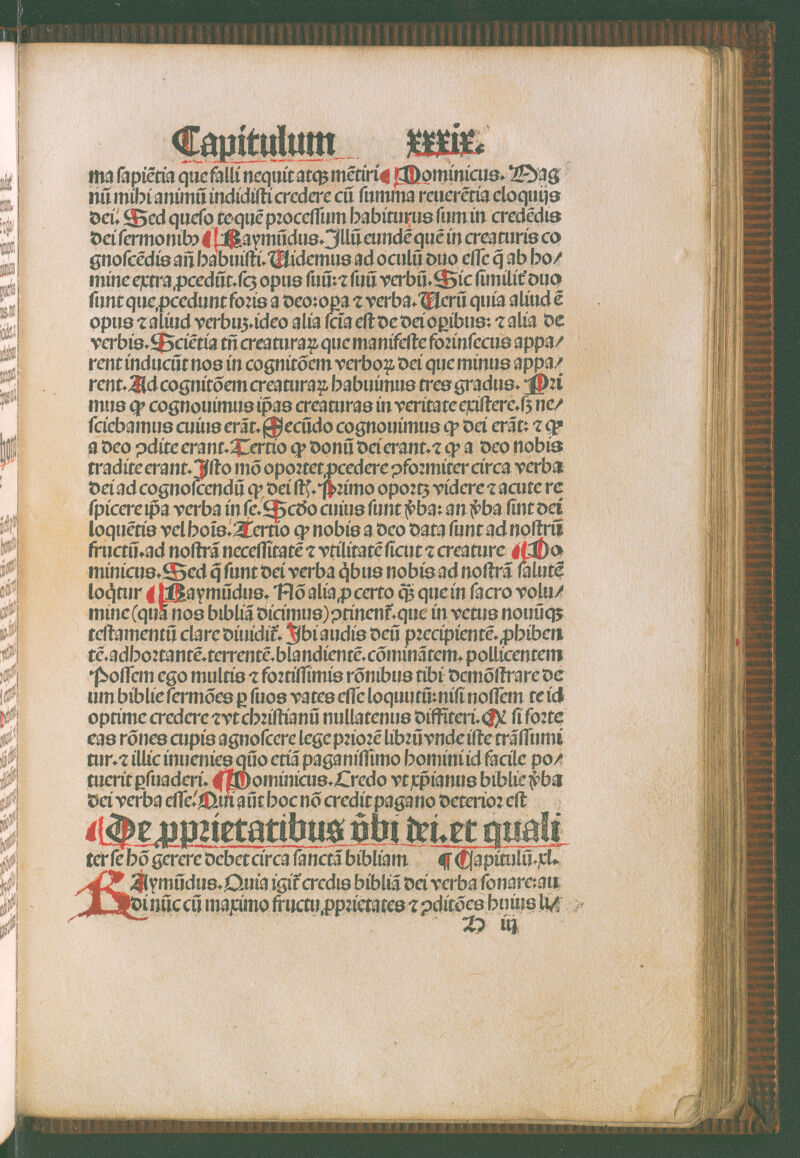 Capitulum xxxix.
ma ſapiẽtia que falli nequit atqꝫ mẽtiri ¶ Dominicus. Mag
nũ mihi animũ indidiſti credere cũ ſumma reuerẽtia eloquijs
dei. Sed queſo te quẽ proceſſum habiturus ſum in credẽdis
dei ſermonibꝰ ¶ Raymũdus. Illũ eundẽ quẽ in creaturis co
gnoſcẽdis añ habuiſti. Uidemus ad oculũ duo eſſe q̃ ab ho/
mine extra ꝓcedũt. ſcꝫ opus ſuũ: ⁊ ſuũ verbũ. Sic ſimilit᷑ duo
ſunt que ꝓcedunt foris a deo: oꝑa ⁊ verba. Uerũ quia aliud ẽ
opus ⁊ aliud verbuꝫ. ideo alia ſcĩa eſt de dei oꝑibus: ⁊ alia de
verbis. Sciẽtia tñ creaturaꝝ que manifeſte forinſecus appa/
rent inducũt nos in cognitõem verboꝝ dei que minus appa/
rent. Ad cognitõem creaturaꝝ habuimus tres gradus. Pri
mus ꝙ cognouimus ip̃as creaturas in veritate exiſtere. ſꝫ ne/
ſciebamus cuius erãt. Secũdo cognouimus ꝙ dei erãt: ⁊ ꝙ
a deo ꝯdite erant. Tertio ꝙ donũ dei erant. ⁊ ꝙ a deo nobis
tradite erant. Iſto mõ oportet ꝓcedere ꝯformiter circa verba
dei ad cognoſcendũ ꝙ dei ſĩt. Primo oportꝫ videre ⁊ acute re
ſpicere ip̃a verba in ſe. Scd̃o cuius ſunt v̾ba: an v̾ba ſint dei
loquẽtis vel hoĩs. Tertio ꝙ nobis a deo data ſunt ad noſtrũ
fructũ. ad noſtrã neceſſitatẽ ⁊ vtilitatẽ ſicut ⁊ creature ¶ Do
minicus. Sed q̃ ſunt dei verba q̇bus nobis ad noſtrã ſalutẽ
loq̇tur ¶ Raymũdus. Nõ alia ꝓ certo q̃ꝫ que in ſacro volu/
mine (quã nos bibliã dicimus) ꝯtinent᷑. que in vetus nouũqꝫ
teſtamentũ clare diuidit᷑. Ibi audis deũ precipientẽ. ꝓhiben
tẽ. adhortantẽ. terrentẽ. blandientẽ. cõminãtem. pollicentem
Poſſem ego multis ⁊ fortiſſimis rõnibus tibi demõſtrare de
um biblie ſermões ꝑ ſuos vates eſſe loquutũ: niſi noſſem te id
optime credere ⁊ vt chriſtianũ nullatenus diffiteri. Qꝫ ſi forte
eas rõnes cupis agnoſcere lege priorẽ librũ vnde iſte trãſſumi
tur. ⁊ illic inuenies quõ etiã paganiſſimo homini id facile po/
tuerit ꝑſuaderi. ¶ Dominicus. Credo vt xp̃ianus biblie v̾ba
dei verba eſſe. Qui aũt hoc nõ credit pagano deterior eſt
¶ De ꝓprietatibus v̾bi dei. et quali
ter ſe hõ gerere debet circa ſanctã bibliam ¶ Capitulũ. xl.
RAymũdus. Quia igit᷑ credis bibliã dei verba ſonare: au
di nũc cũ maximo fructu ꝓprietates ⁊ ꝯditões huius li/
D iij